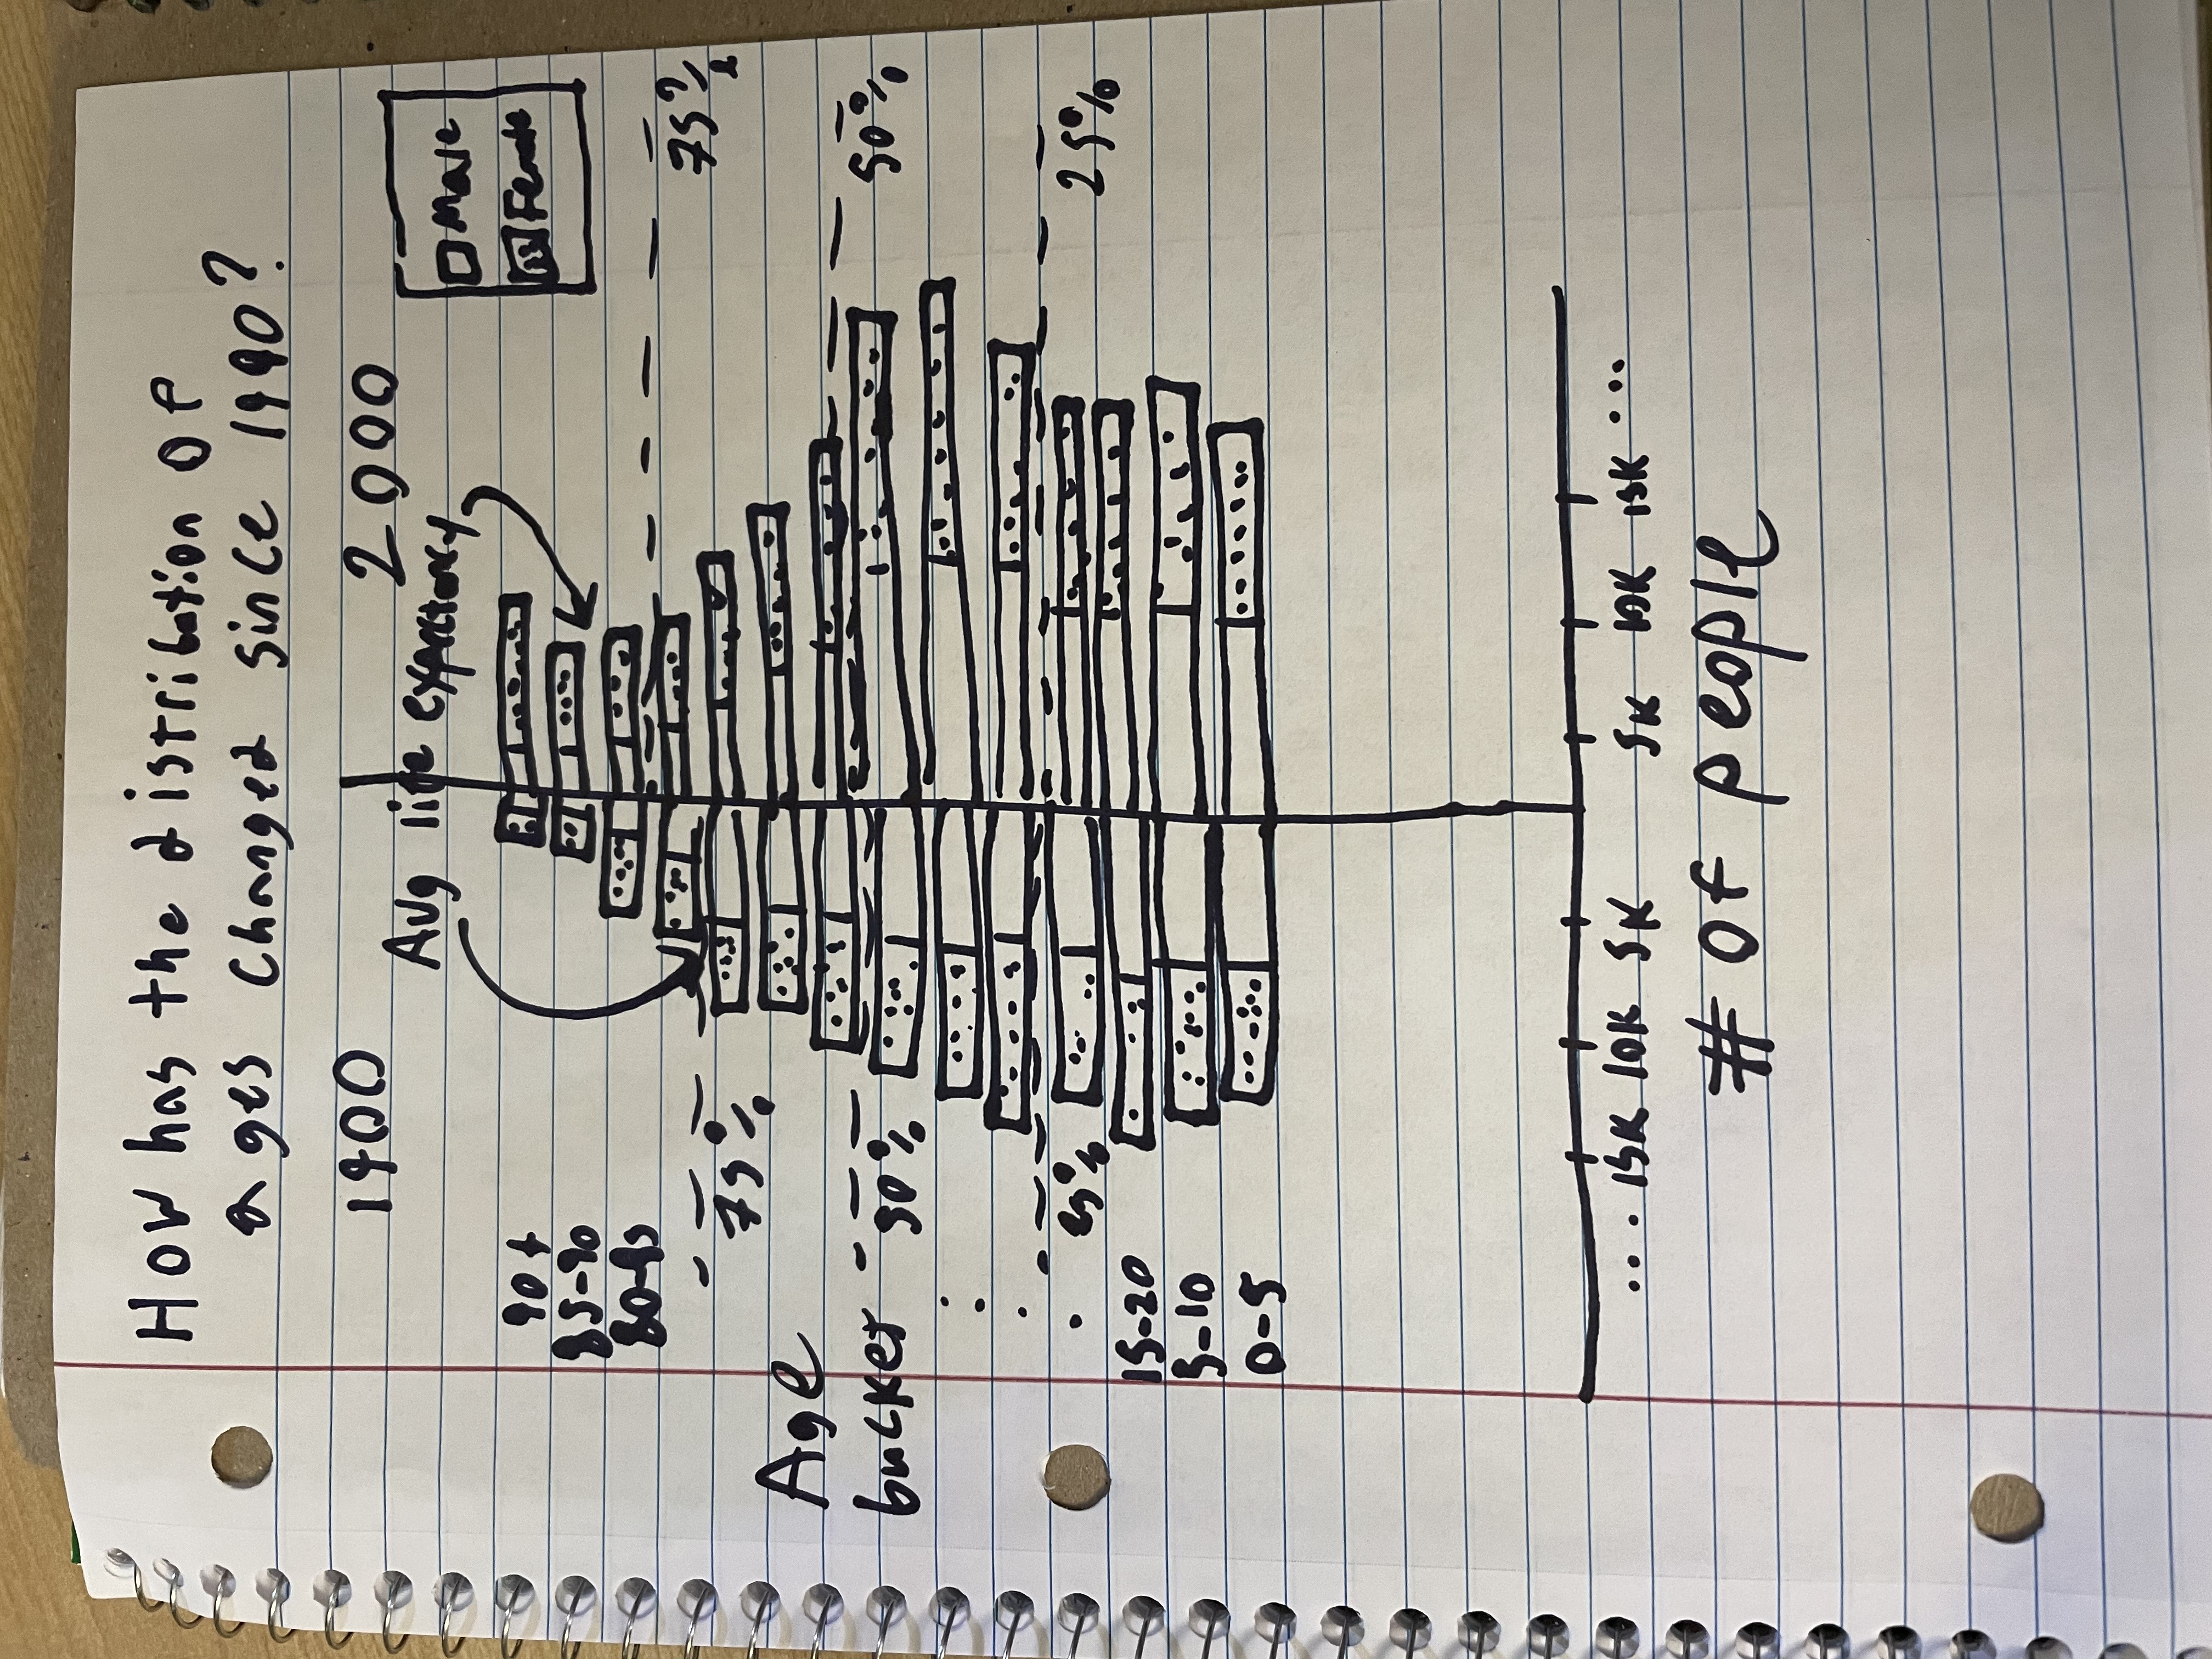 How has the distribution of
ages changed since 1990?
1900
2000
Avg life expectancy
Male
Female
90+
85-90
80-85
75%
75%
Age
bucket
50%
50%
25%
25%
15-20
5-10
0-5
... 15K 10K 5K 5K 10K 15K ...
# of people